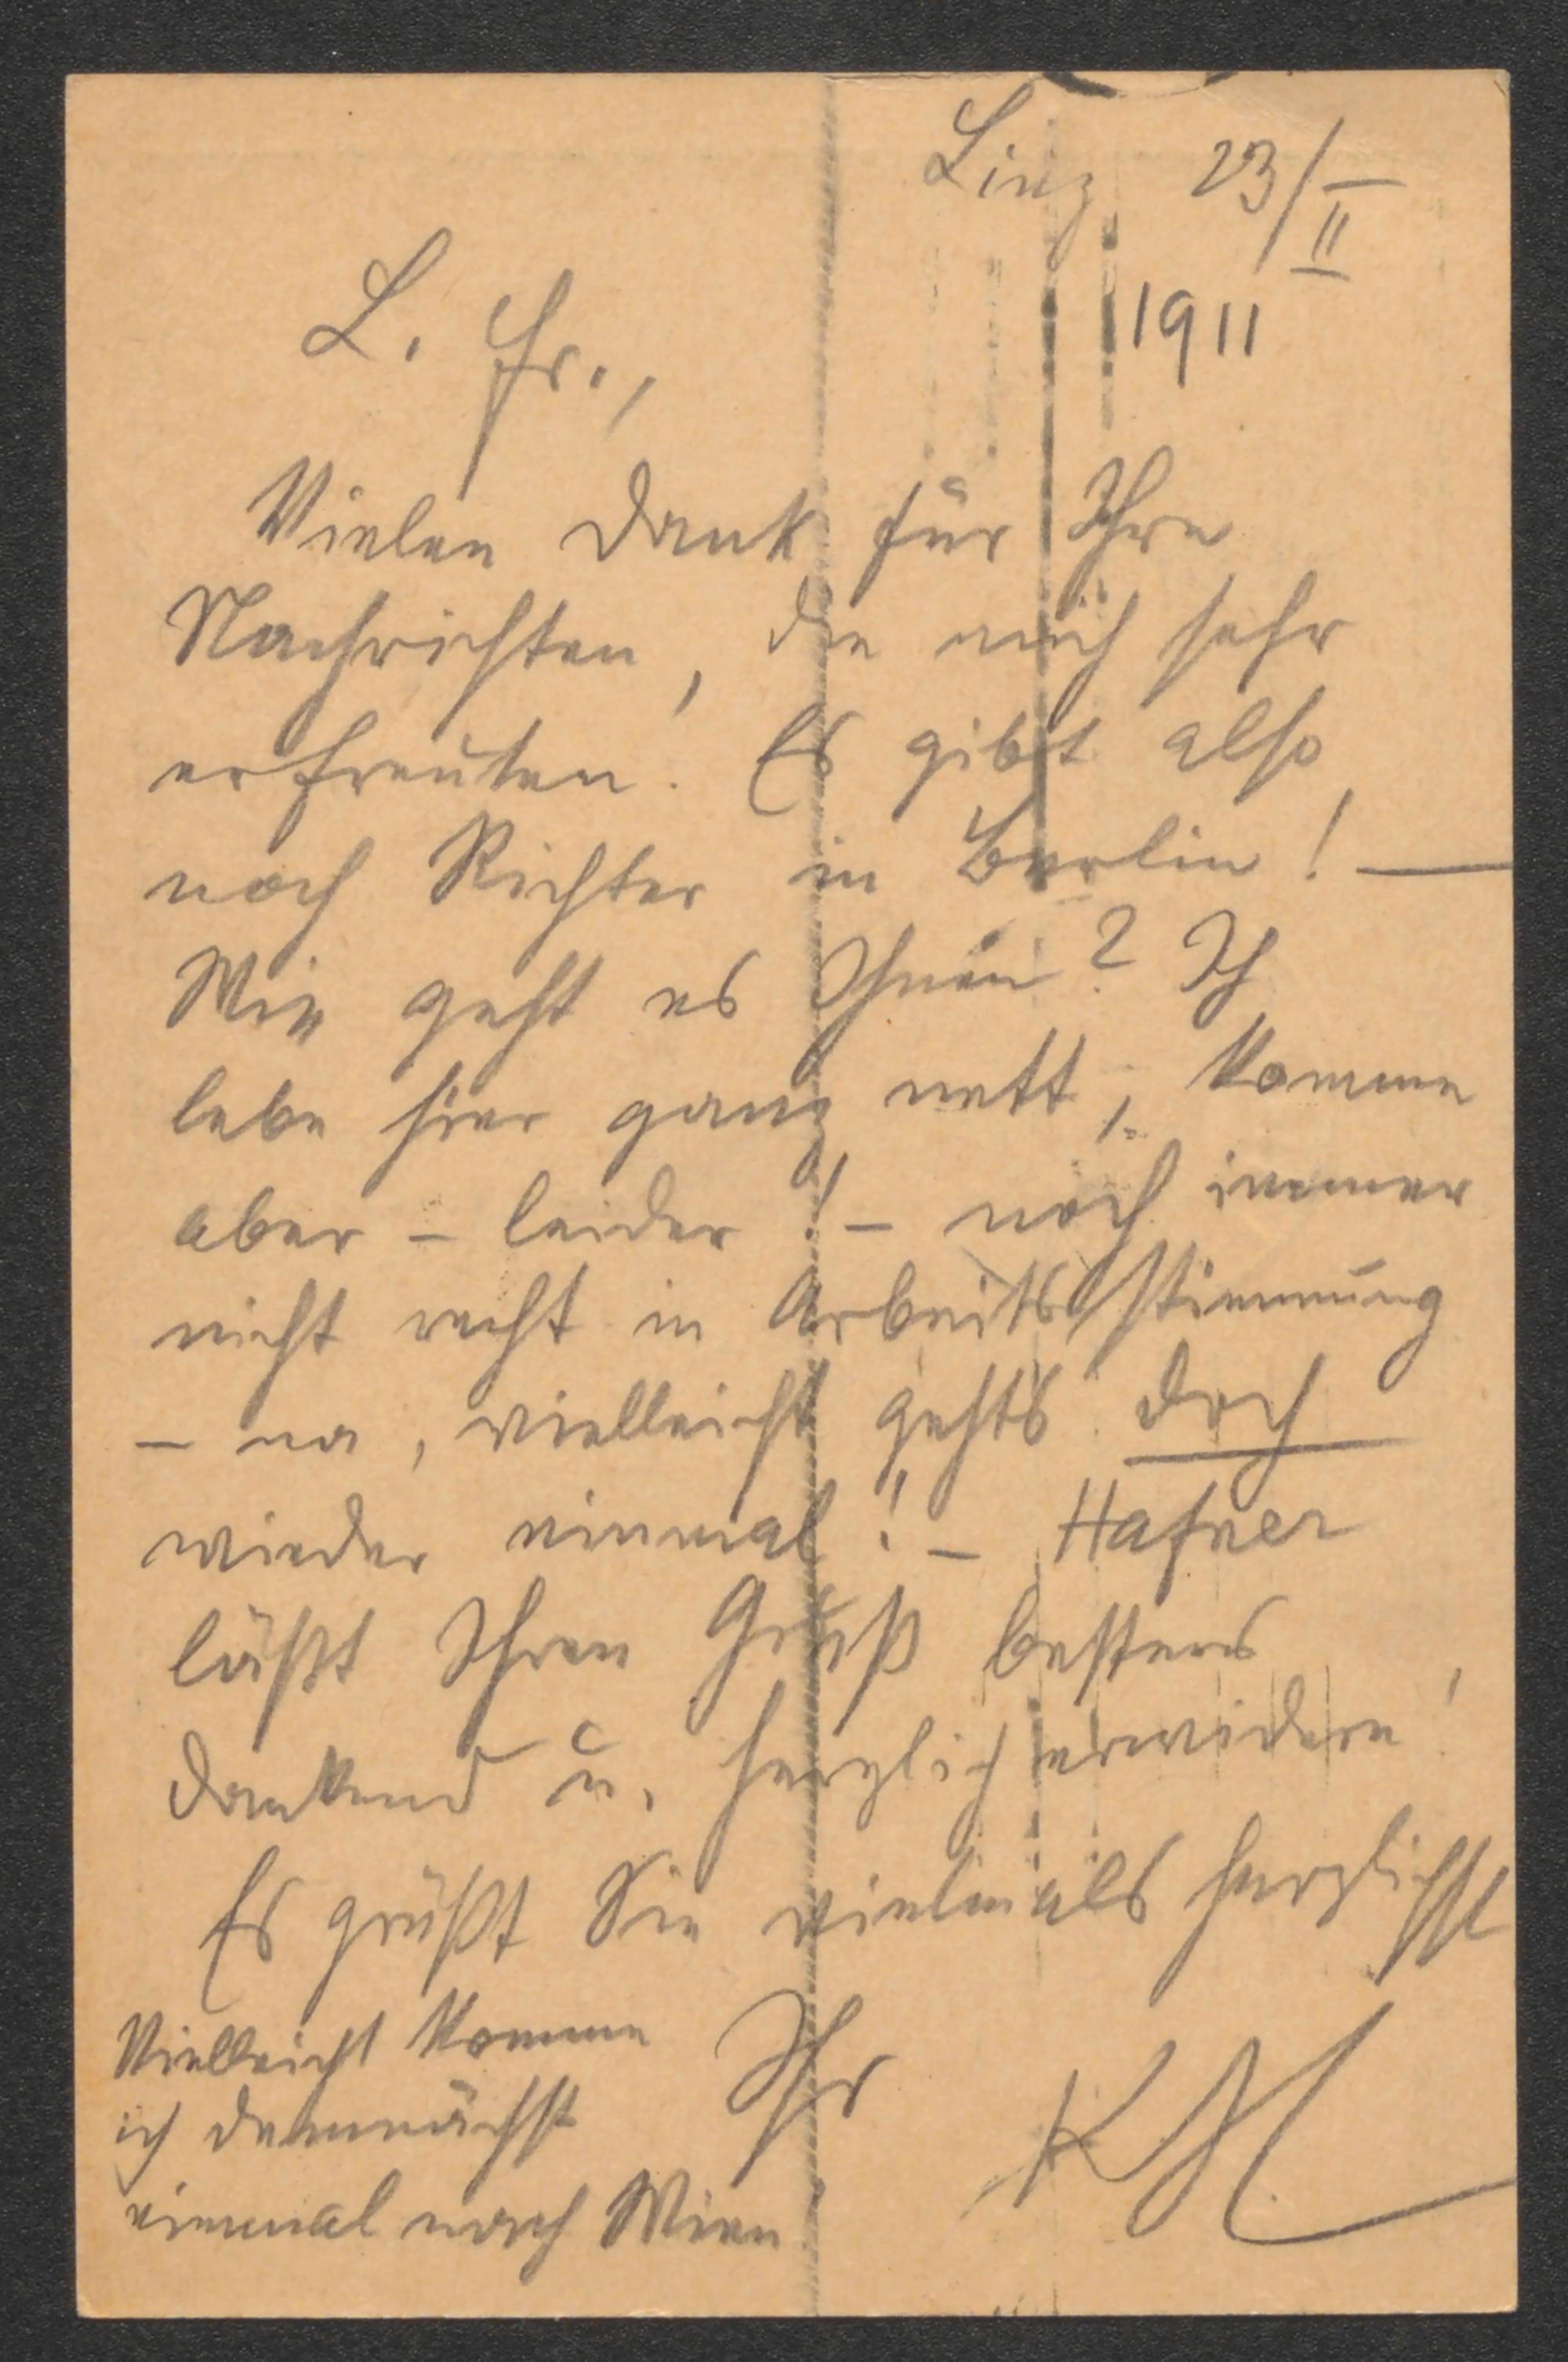 Linz 23/II
1911
L. Fr.,
Vielen Dank für Ihre
Nachrichten, die mich sehr
erfreuten. Es gibt also
noch Richter in Berlin! —
Wie geht es Ihnen? Ich
lebe hier ganz nett, komme
aber – leider! – noch immer
nicht recht in Arbeitsstimmung
– na, vielleicht gehts doch
wieder einmal! – Hafner
läßt Ihren Gruß bestens
dankend u. herzlich erwidern!
Es grüßt Sie vielmals herzlichst
Ihr
Vielleicht komme
ich demnächst
einmal nach Wien